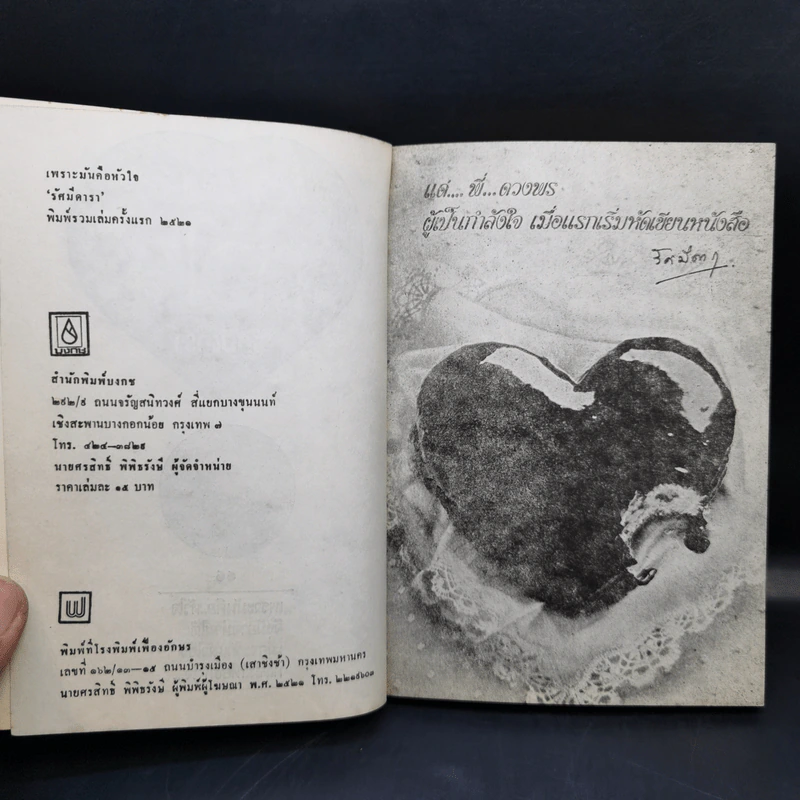 เพราะมันคือหัวใจ
'รัศมีดารา'
พิมพ์รวมเล่มครั้งแรก ๒๕๒๑
บงกช
สำนักพิมพ์บงกช
๒๙๒/๙ ถนนจรัญสนิทวงศ์ สี่แยกบางขุนนนท์
เชิงสะพานบางกอกน้อย กรุงเทพ ๗
โทร. ๔๒๔—๓๘๒๙
นายศรสิทธิ์ พิพิธรังษี ผู้จัดจำหน่าย
ราคาเล่มละ ๑๕ บาท
พิมพ์ที่โรงพิมพ์เฟื่องอักษร
เลขที่ ๑๖๒/๑๓—๑๕ ถนนบำรุงเมือง (เสาชิงช้า) กรุงเทพมหานคร
นายศรสิทธิ์ พิพิธรังษี ผู้พิมพ์ผู้โฆษณา พ.ศ. ๒๕๒๑ โทร. ๒๒๑๕๖๐๑
แด่.... พี่...ดวงพร
ผู้เป็นกำลังใจ เมื่อแรกเริ่มหัดเขียนหนังสือ
รัศมีดารา